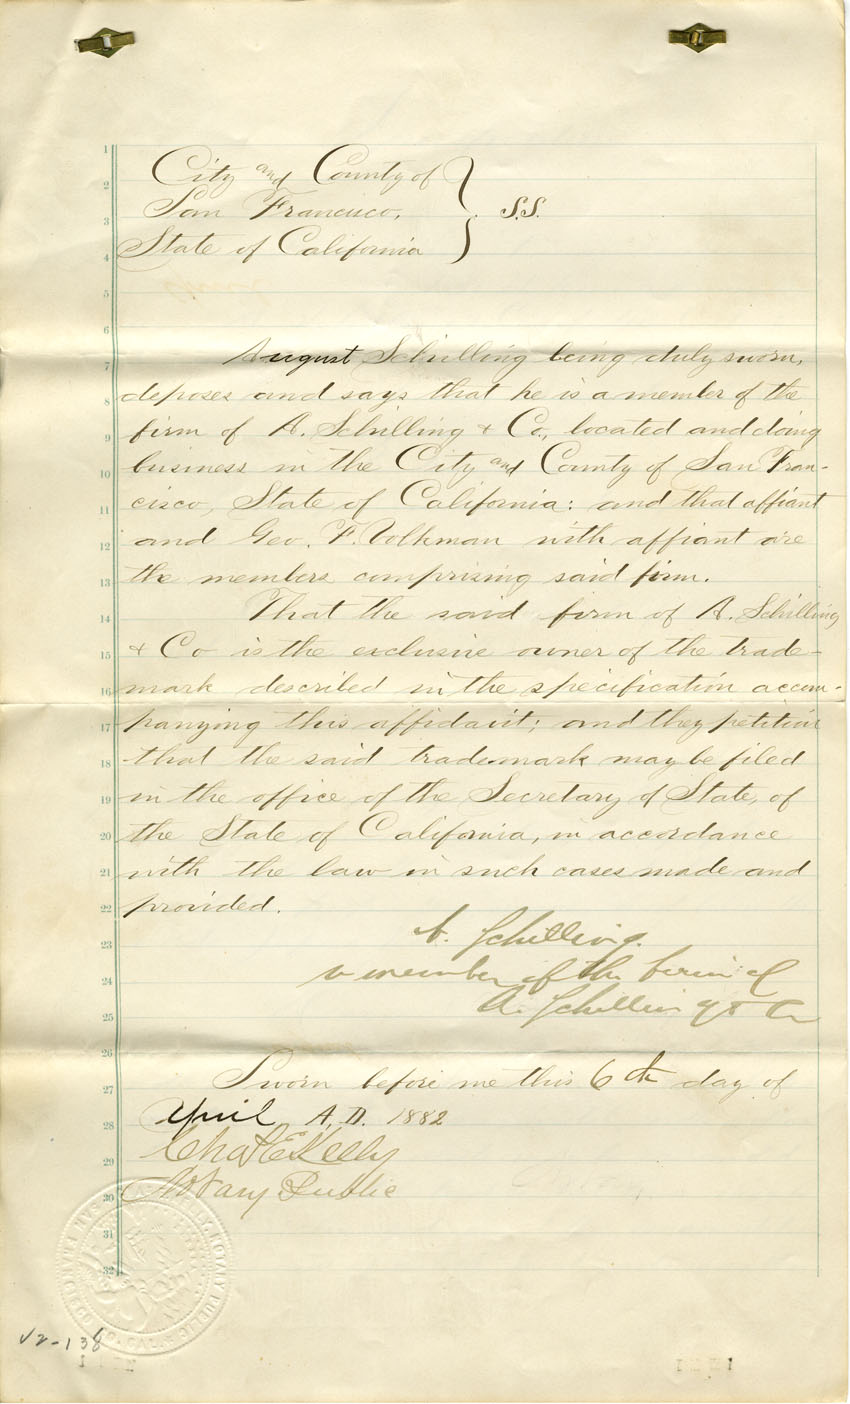 City and County of
San Francisco,
State of California
S.S.
August Schilling being duly sworn,
deposes and says that he is a member of the
firm of A. Schilling & Co., located and doing
business in the City and County of San Fran-
cisco, State of California: and that affiant
and Geo. F. Volkman with affiant are
the members comprising said firm.
That the said firm of A. Schilling
& Co is the exclusive owner of the trade-
mark described in the specification accom-
panying this affidavit; and they petition
that the said trademark may be filed
in the office of the Secretary of State, of
the State of California, in accordance
with the law in such cases made and
provided.
A. Schilling.
a member of the firm of
A. Schilling & Co
Sworn before me this 6th day of
April A.D. 1882
Chas E Kelly
Notary Public
1
2
3
4
5
6
7
8
9
10
11
12
13
14
15
16
17
18
19
20
21
22
23
24
25
26
27
28
29
30
31
32
NOTARY PUBLIC
CAL.
V2-138